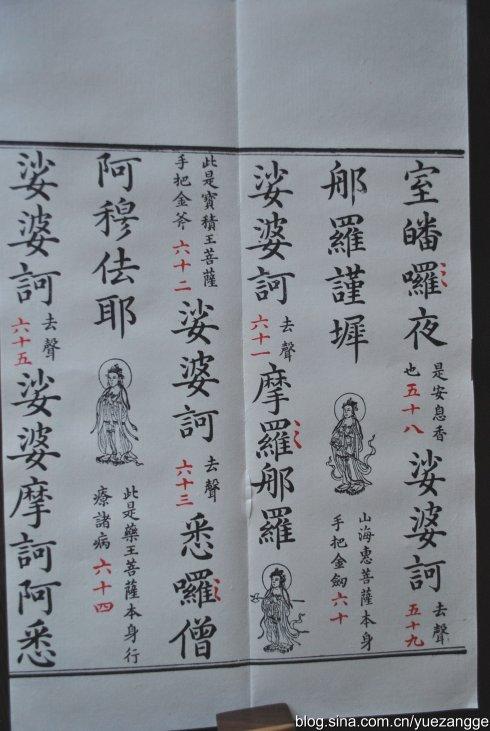 室皤囉夜 是安息香也 五十八 娑婆訶 去聲 五十九
那羅謹墀 山海惠菩薩本身手把金劒 六十
娑婆訶 去聲 六十一 摩羅那羅
此是寶積王菩薩手把金斧 六十二 娑婆訶 去聲 六十三 悉囉僧
阿穆佉耶 此是藥王菩薩本身行療諸病 六十四
娑婆訶 去聲 六十五 娑婆摩訶阿悉
blog.sina.com.cn/yuezangge